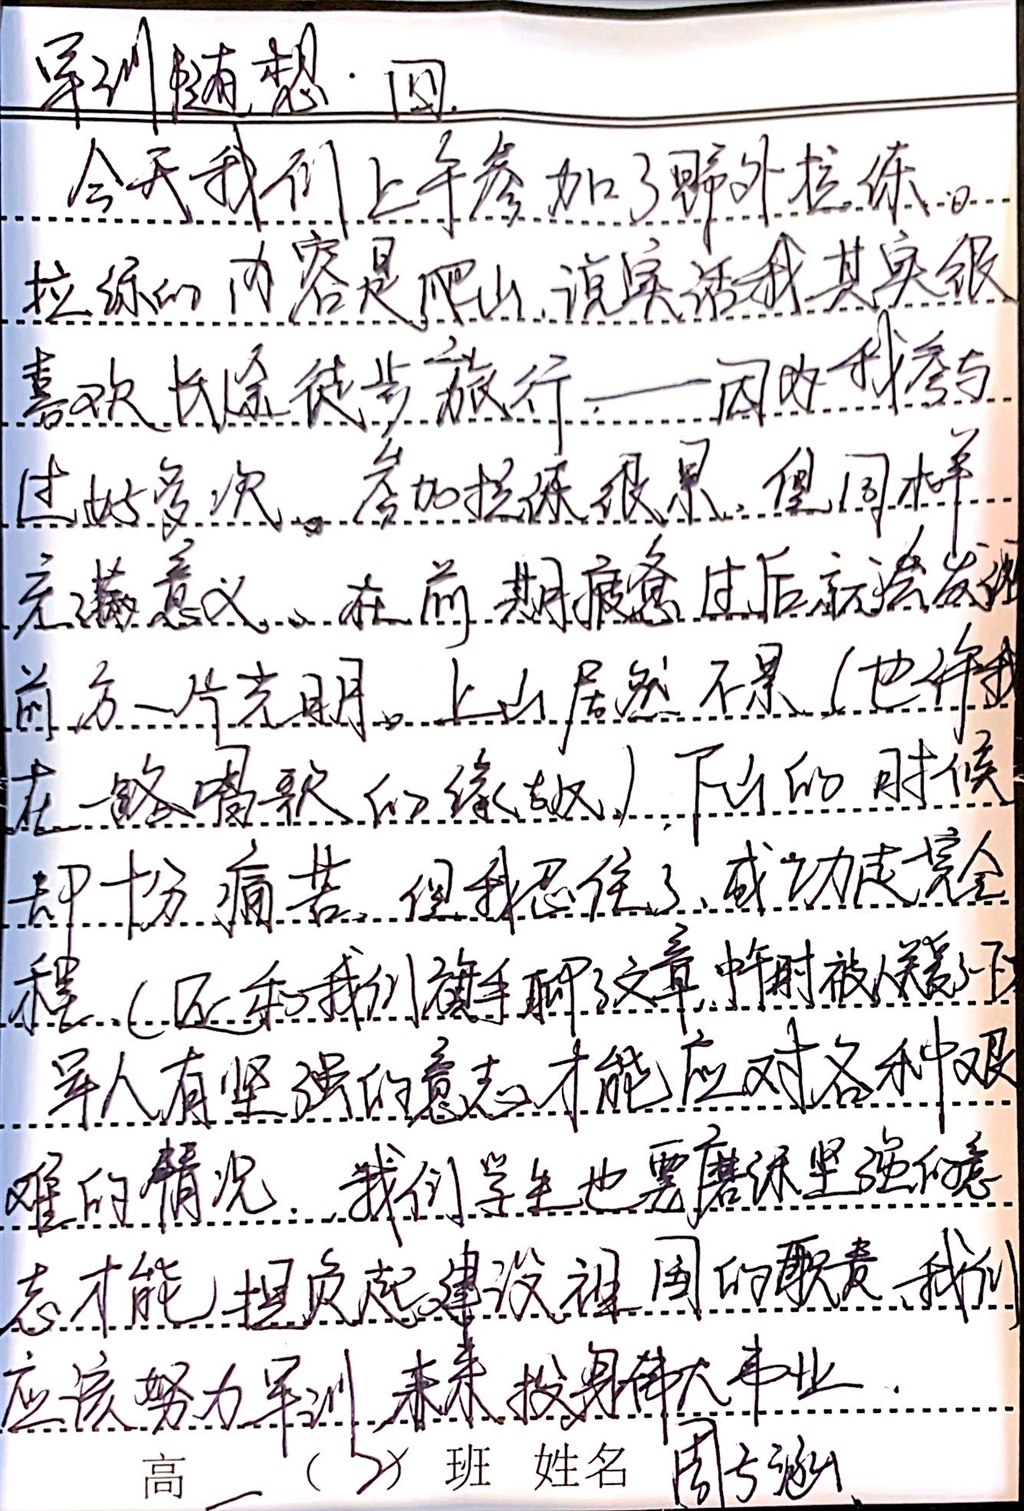 军训随想·四
今天我们上午参加了野外拉练。
拉练的内容是爬山,说实话我其实很
喜欢长途徒步旅行——因为我参与
过好多次。参加拉练很累,但同样
充满意义。在前期疲惫过后就会发现
前方一片光明。上山居然不累(也许我
在一路唱歌的缘故),下山的时候
却十分痛苦,但我忍住了,成功走完全
程,(还和我们旗手聊了文章,中午时被人
军人有坚强的意志才能应对各种艰
难的情况,我们学生也要磨练坚强的意
志才能担负起建设祖国的职责,我们
应该努力军训,未来投身伟大事业.
高一(2)班 姓名 周与涵